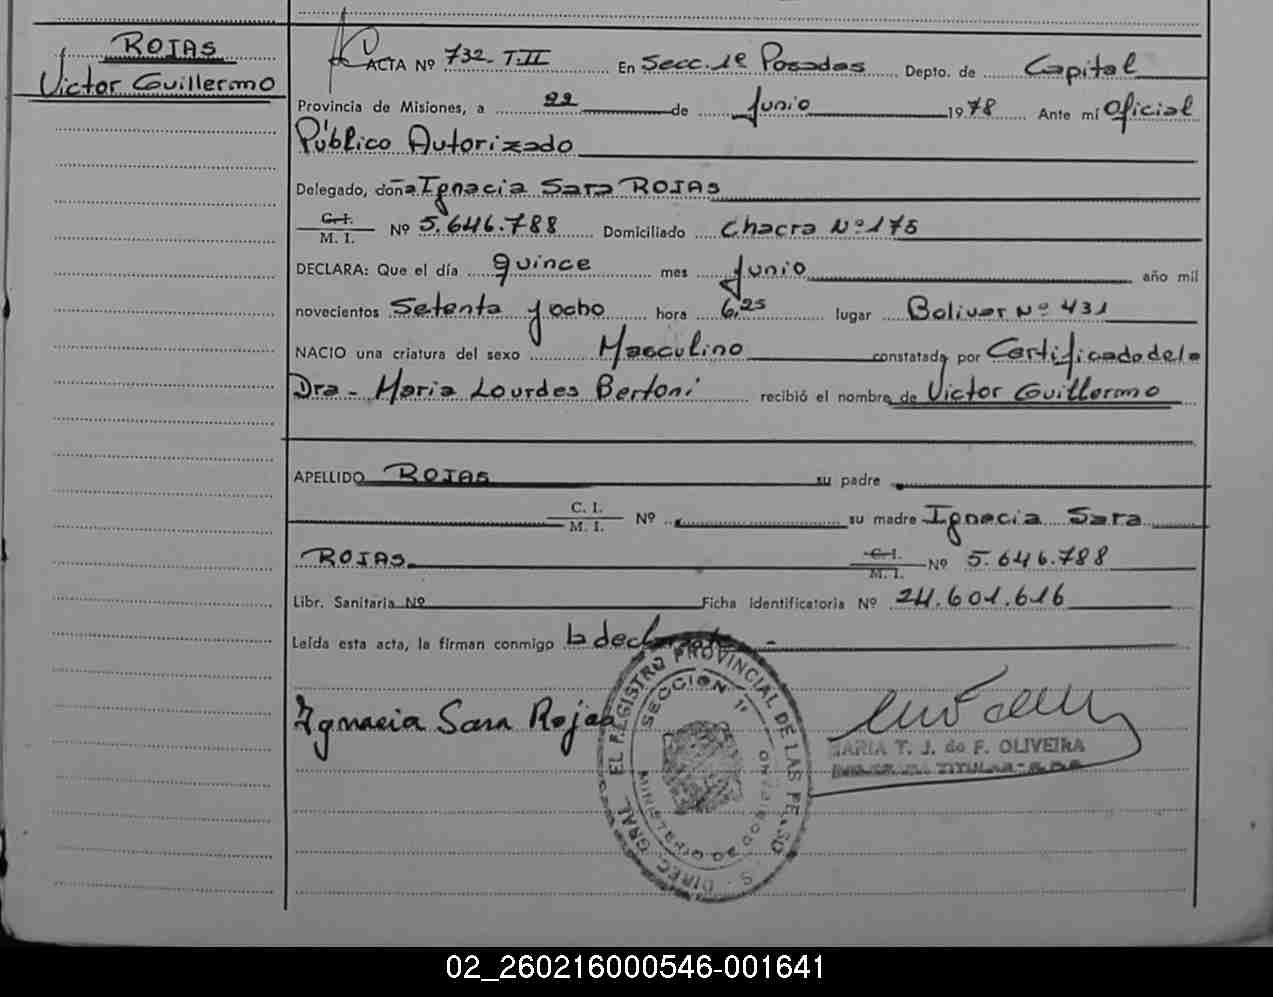 ROJAS
Victor Guillermo
ACTA Nº 732- T.II En Secc. 1ª Posadas Depto. de Capital
Provincia de Misiones, a 22 de Junio 1978 Ante mí Oficial
Público Autorizado
Delegado, doña Ignacia Sara ROJAS
C. I.
M. I. Nº 5.646.788 Domiciliado Chacra Nº 175
DECLARA: Que el día quince mes Junio año mil
novecientos Setenta y ocho hora 6,25 lugar Bolivar Nº 431
NACIO una criatura del sexo Masculino constatada por Certificado de la
Dra. Maria Lourdes Bertoni recibió el nombre de Victor Guillermo
APELLIDO ROJAS su padre
C. I.
M. I. Nº su madre Ignacia Sara
ROJAS C. I.
M. I. Nº 5.646.788
Libr. Sanitaria Nº Ficha Identificatoria Nº 24.601.616
Leída esta acta, la firman conmigo la declarante -
Ygnacia Sara Rojas
MARIA T. J. de F. OLIVEIRA
TITULAR
DIREC. GRAL EL REGISTRO PROVINCIAL DE LAS PE
SECCION 1ª
MINISTERIO DE GOBIERNO
02_260216000546-001641